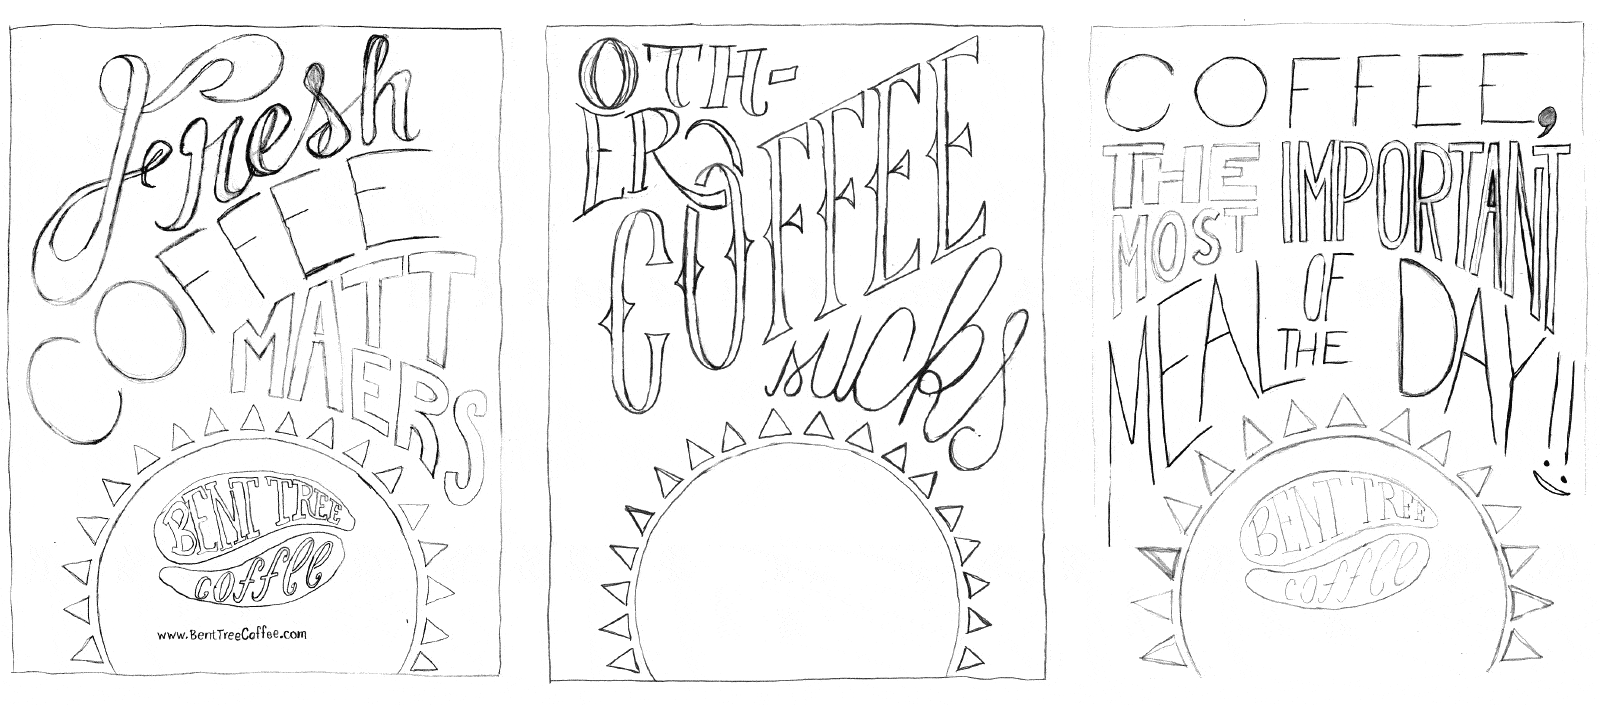 Fresh
COFFEE
MATT
AERS
BENT TREE
coffee
www.BentTreeCoffee.com
OTH-
ER
COFFEE
sucks
COFFEE,
THE
MOST
IMPORTANT
MEAL
OF
THE
DAY!!
BENT TREE
coffee